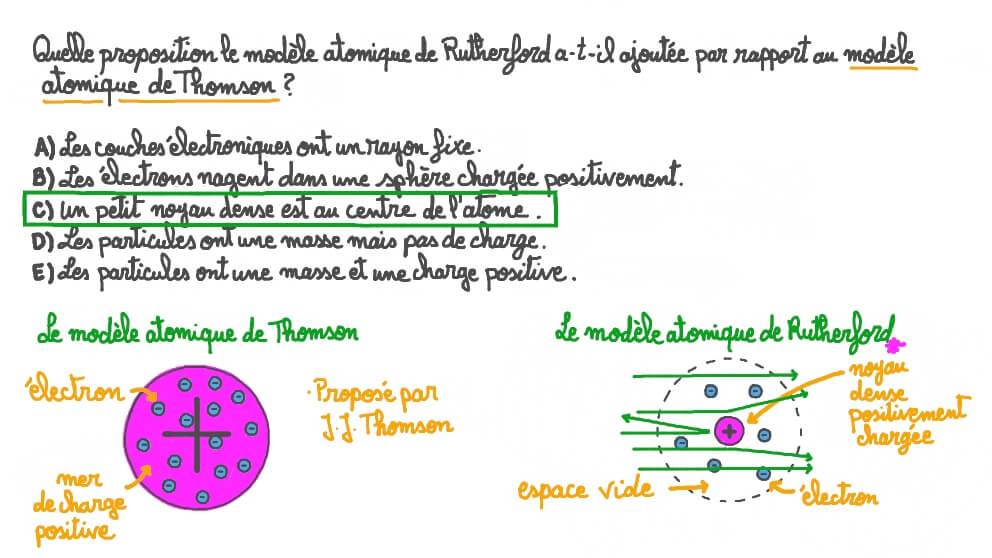 Quelle proposition le modèle atomique de Rutherford a-t-il ajoutée par rapport au modèle
atomique de Thomson ?
A) Les couches électroniques ont un rayon fixe.
B) Les électrons nagent dans une sphère chargée positivement.
C) Un petit noyau dense est au centre de l'atome.
D) Les particules ont une masse mais pas de charge.
E) Les particules ont une masse et une charge positive.
Le modèle atomique de Thomson
électron
mer
de charge
positive
· Proposé par
J.J. Thomson
Le modèle atomique de Rutherford
noyau
dense
positivement
chargée
espace vide
électron